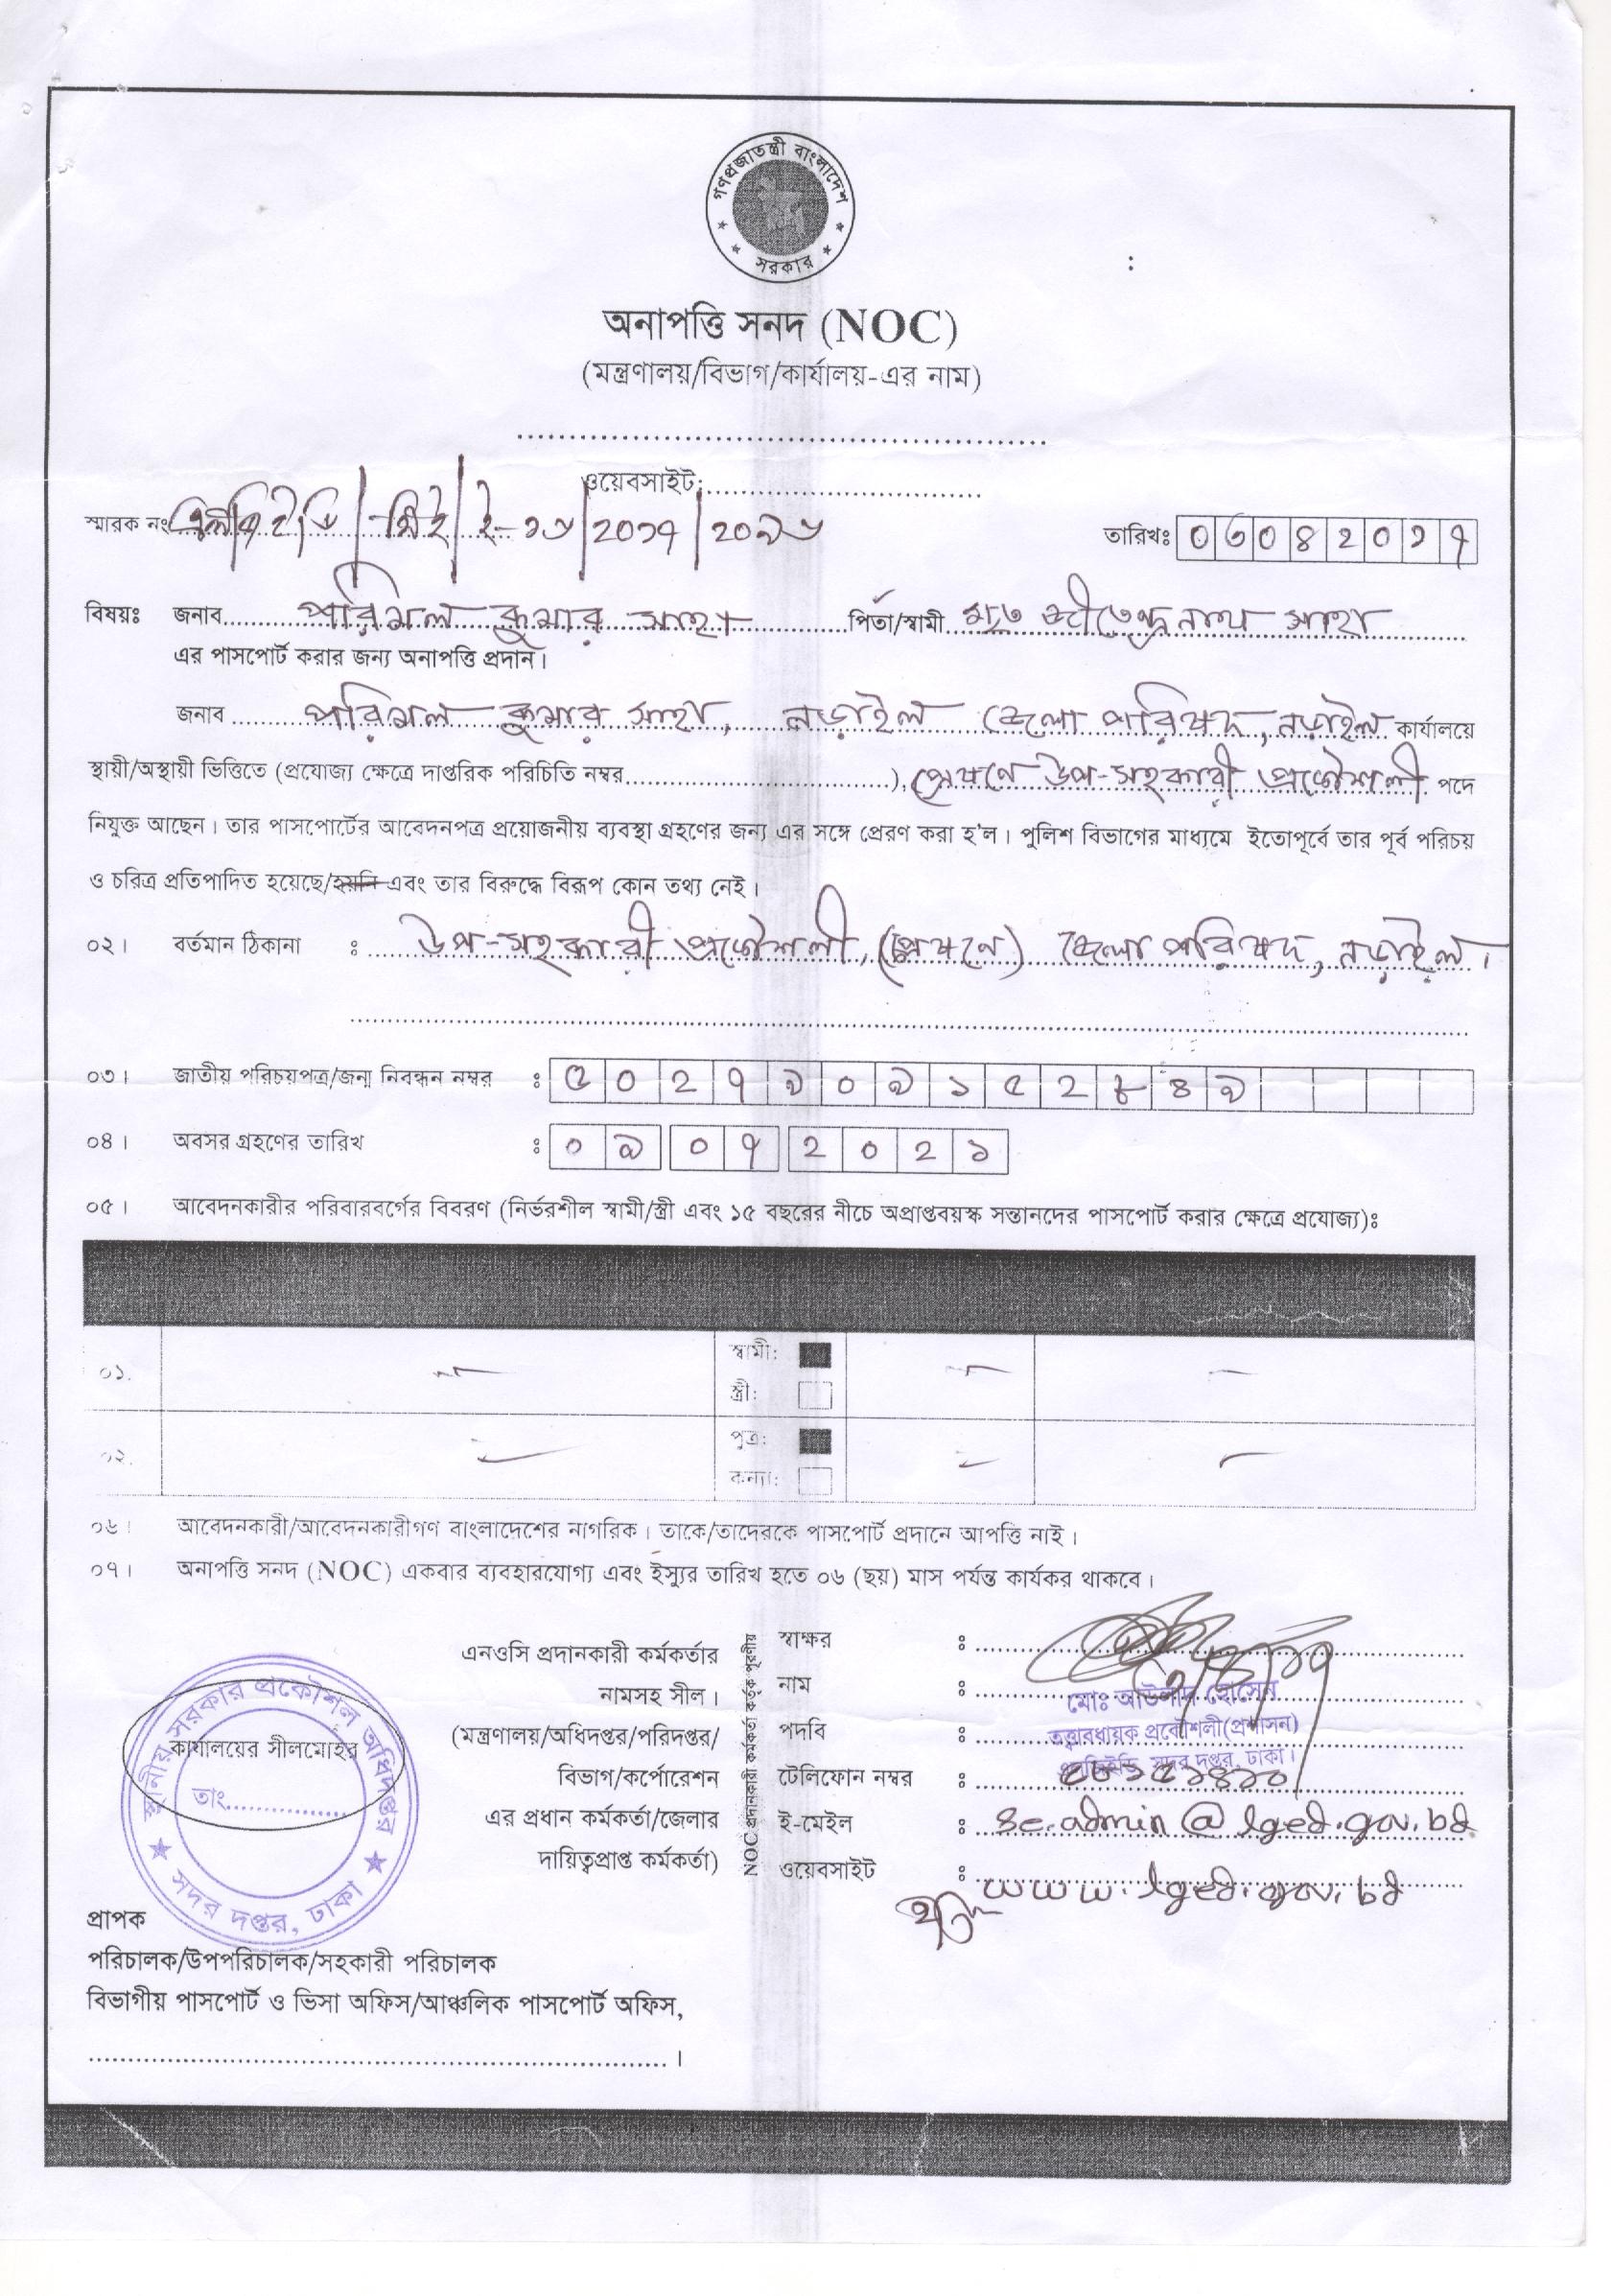 গণপ্রজাতন্ত্রী বাংলাদেশ
সরকার
অনাপত্তি সনদ (NOC)
(মন্ত্রণালয়/বিভাগ/কার্যালয়-এর নাম)
ওয়েবসাইট:
স্মারক নং এলজিইডি/সিই/ই-১৩/২০১৭/২০৯৬
তারিখঃ ০৬০৪২০১৭
বিষয়ঃ জনাব পরিমল কুমার সাহা পিতা/স্বামী মৃত জীতেন্দ্র নাথ সাহা
এর পাসপোর্ট করার জন্য অনাপত্তি প্রদান।
জনাব পরিমল কুমার সাহা, নড়াইল জেলা পরিষদ, নড়াইল কার্যালয়ে
স্থায়ী/অস্থায়ী ভিত্তিতে (প্রযোজ্য ক্ষেত্রে দাপ্তরিক পরিচিতি নম্বর), প্রেষণে উপ-সহকারী প্রকৌশলী পদে
নিযুক্ত আছেন। তার পাসপোর্টের আবেদনপত্র প্রয়োজনীয় ব্যবস্থা গ্রহণের জন্য এর সঙ্গে প্রেরণ করা হ'ল। পুলিশ বিভাগের মাধ্যমে ইতোপূর্বে তার পূর্ব পরিচয়
ও চরিত্র প্রতিপাদিত হয়েছে/হয়নি এবং তার বিরুদ্ধে বিরূপ কোন তথ্য নেই।
০২। বর্তমান ঠিকানা : উপ-সহকারী প্রকৌশলী, (প্রেষণে) জেলা পরিষদ, নড়াইল।
০৩। জাতীয় পরিচয়পত্র/জন্ম নিবন্ধন নম্বর : ৫০২৭৯০৯১৫২৮৪৯
০৪। অবসর গ্রহণের তারিখ : ০৯ ০৭ ২০২১
০৫। আবেদনকারীর পরিবারবর্গের বিবরণ (নির্ভরশীল স্বামী/স্ত্রী এবং ১৫ বছরের নীচে অপ্রাপ্তবয়স্ক সন্তানদের পাসপোর্ট করার ক্ষেত্রে প্রযোজ্য)ঃ
০১. স্বামী:
স্ত্রী:
০২. পুত্র:
কন্যা:
০৬। আবেদনকারী/আবেদনকারীগণ বাংলাদেশের নাগরিক। তাকে/তাদেরকে পাসপোর্ট প্রদানে আপত্তি নাই।
০৭। অনাপত্তি সনদ (NOC) একবার ব্যবহারযোগ্য এবং ইস্যুর তারিখ হতে ০৬ (ছয়) মাস পর্যন্ত কার্যকর থাকবে।
এনওসি প্রদানকারী কর্মকর্তার
নামসহ সীল।
(মন্ত্রণালয়/অধিদপ্তর/পরিদপ্তর/
বিভাগ/কর্পোরেশন
এর প্রধান কর্মকর্তা/জেলার
দায়িত্বপ্রাপ্ত কর্মকর্তা)
NOC প্রদানকারী কর্মকর্তা কর্তৃক পূরণীয়
স্বাক্ষর :
নাম : মোঃ আউলাদ হোসেন
পদবি : তত্ত্বাবধায়ক প্রকৌশলী(প্রশাসন)
এলজিইডি, সদর দপ্তর, ঢাকা।
টেলিফোন নম্বর :
ই-মেইল : se.admin@lged.gov.bd
ওয়েবসাইট : www.lged.gov.bd
স্থানীয় সরকার প্রকৌশল অধিদপ্তর
কার্যালয়ের সীলমোহর
তাং
সদর দপ্তর, ঢাকা
প্রাপক
পরিচালক/উপপরিচালক/সহকারী পরিচালক
বিভাগীয় পাসপোর্ট ও ভিসা অফিস/আঞ্চলিক পাসপোর্ট অফিস,